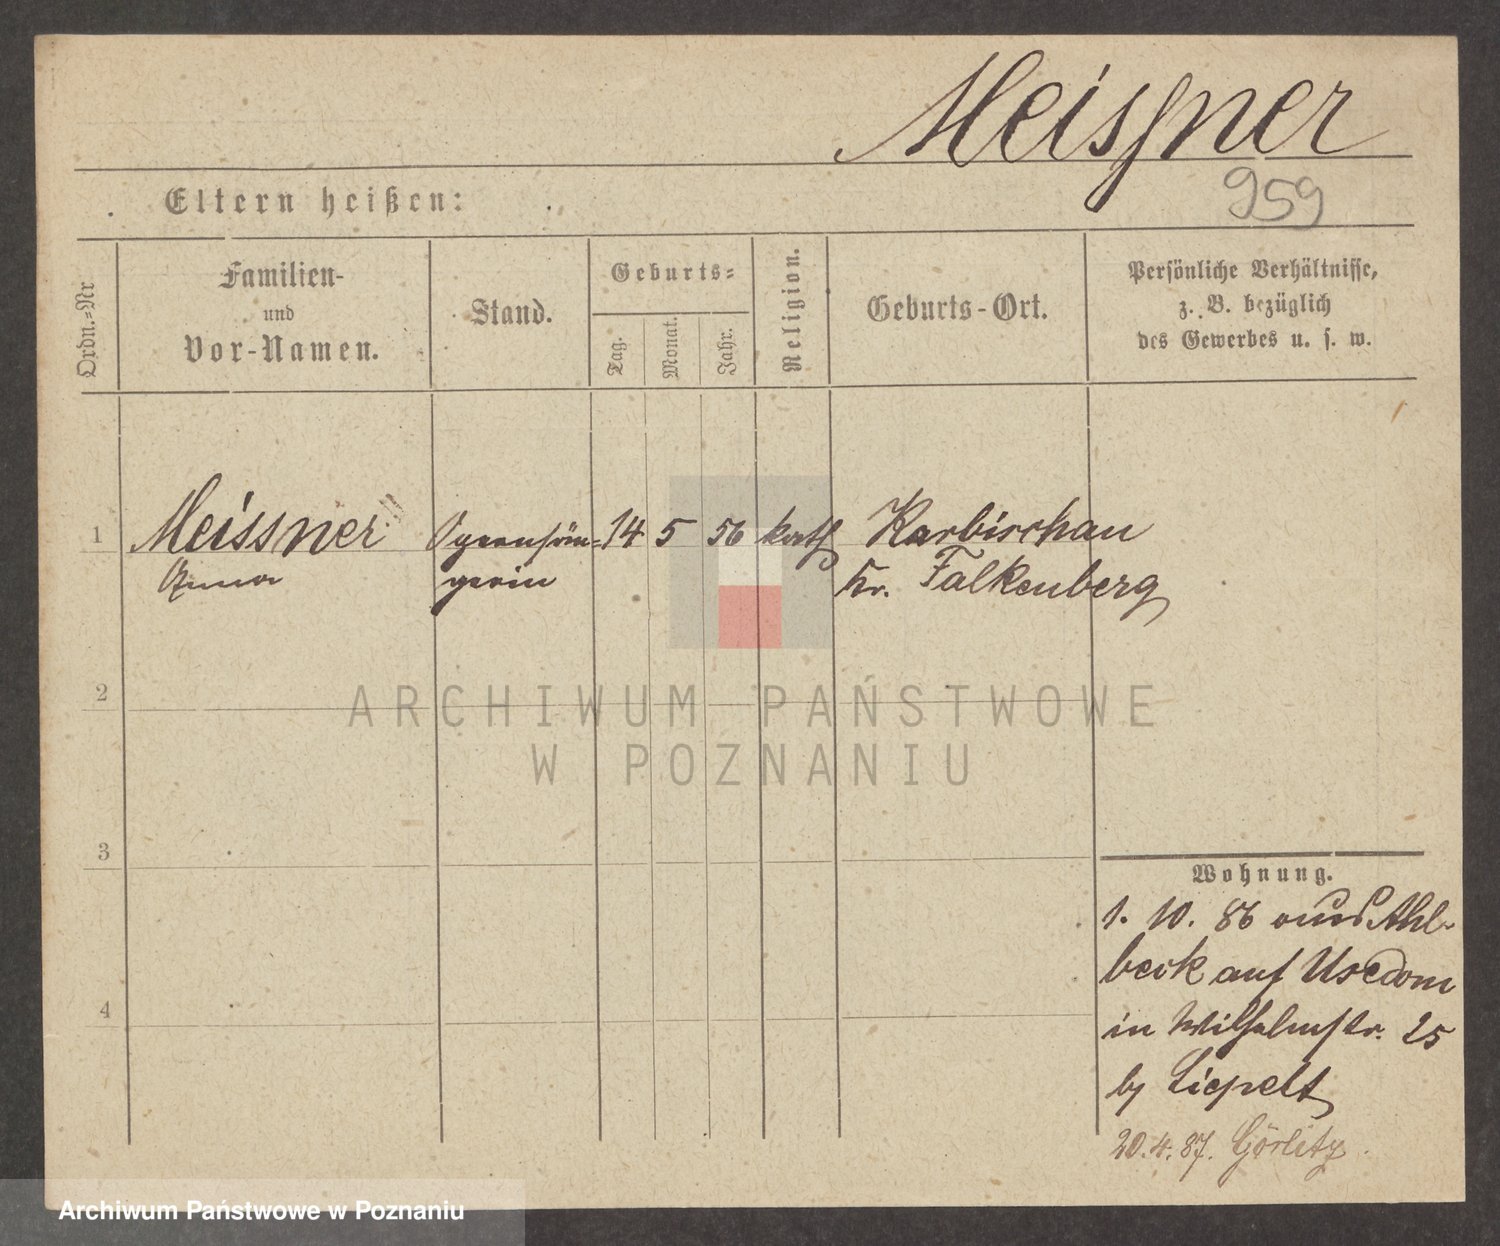 Meissner
959
Eltern heißen:
Ordn.=Nr
Familien-
und
Vor-Namen.
Stand.
Geburts=
Tag.
Monat.
Jahr.
Religion.
Geburts-Ort.
Persönliche Verhältnisse,
z. B. bezüglich
des Gewerbes u. s. w.
1
Meissner
Anna
Opernsän=
gerin
14
5
56
kath
Karbischau
Kr. Falkenberg
2
3
4
ARCHIWUM PAŃSTWOWE
W POZNANIU
Wohnung.
1. 10. 86 aus Ahl-
beck auf Usedom
in Wilhelmstr. 25
by Liepelt
20.4.87. Görlitz.
Archiwum Państwowe w Poznaniu